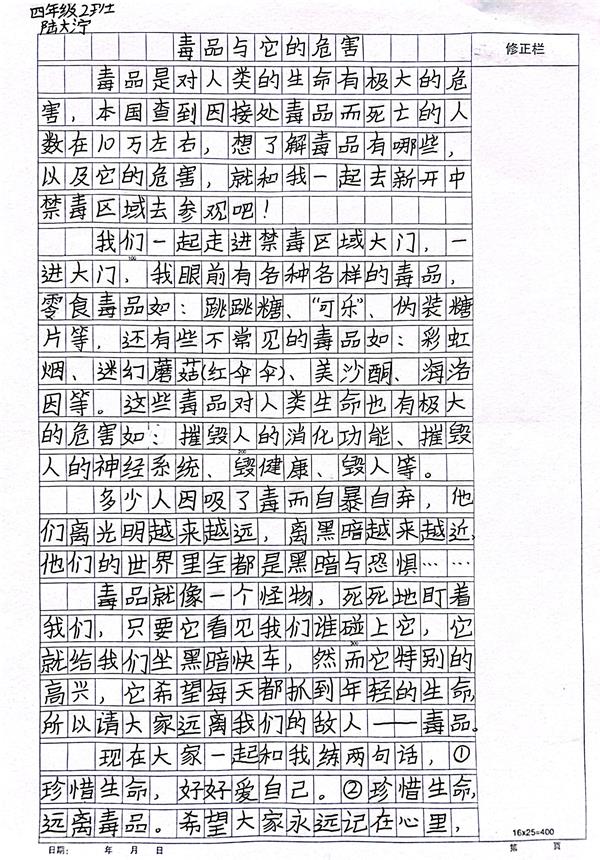 四年级2班
陆大泞
毒品与它的危害
修正栏
毒品是对人类的生命有极大的危
害，本国查到因接处毒品而死亡的人
数在10万左右，想了解毒品有哪些，
以及它的危害，就和我一起去新开中
禁毒区域去参观吧！
我们一起走进禁毒区域大门，一
100
进大门，我眼前有各种各样的毒品，
零食毒品如：跳跳糖、“可乐”、伪装糖
片等，还有些不常见的毒品如：彩虹
烟、迷幻蘑菇(红伞伞)、美沙酮、海洛
因等。这些毒品对人类生命也有极大
的危害如：摧毁人的消化功能、摧毁
200
人的神经系统、毁健康、毁人等。
多少人因吸了毒而自暴自弃，他
们离光明越来越远，离黑暗越来越近，
他们的世界里全都是黑暗与恐惧……
毒品就像一个怪物，死死地盯着
我们，只要它看见我们谁碰上它，它
300
就给我们坐黑暗快车，然而它特别的
高兴，它希望每天都抓到年轻的生命，
所以请大家远离我们的敌人——毒品。
现在大家一起和我练两句话，①
珍惜生命，好好爱自己。②珍惜生命，
远离毒品。希望大家永远记在心里，
16x25=400
日期： 年 月 日 第 页